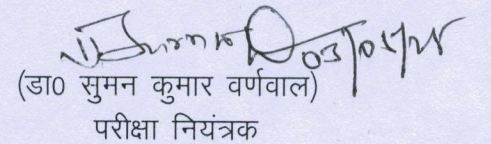 03/05/25
(डा० सुमन कुमार वर्णवाल)
परीक्षा नियंत्रक